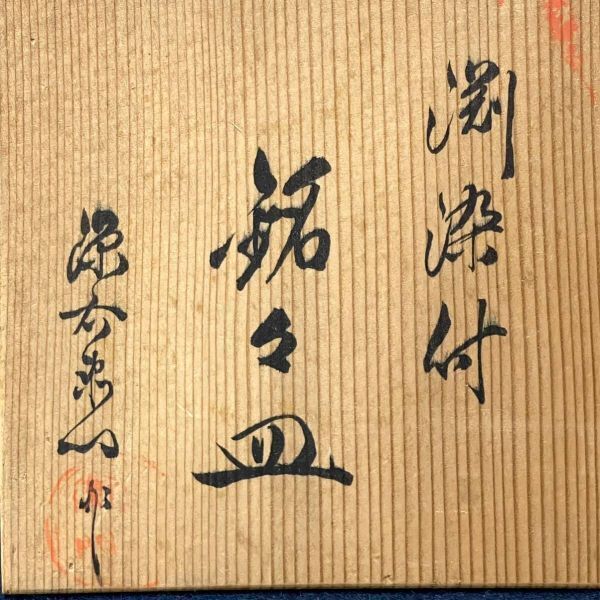 渕染付
銘々皿
源右衛門作